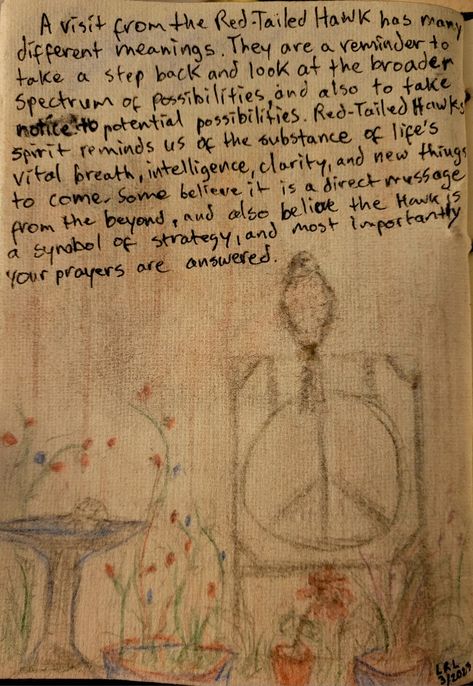 A visit from the Red-Tailed Hawk has many
different meanings. They are a reminder to
take a step back and look at the broader
spectrum of possibilities, and also to take
notice to potential possibilities. Red-Tailed Hawks'
spirit reminds us of the substance of life's
vital breath, intelligence, clarity, and new things
to come. Some believe it is a direct message
from the beyond, and also believe the Hawk is
a symbol of strategy, and most importantly
your prayers are answered.
L.R.L